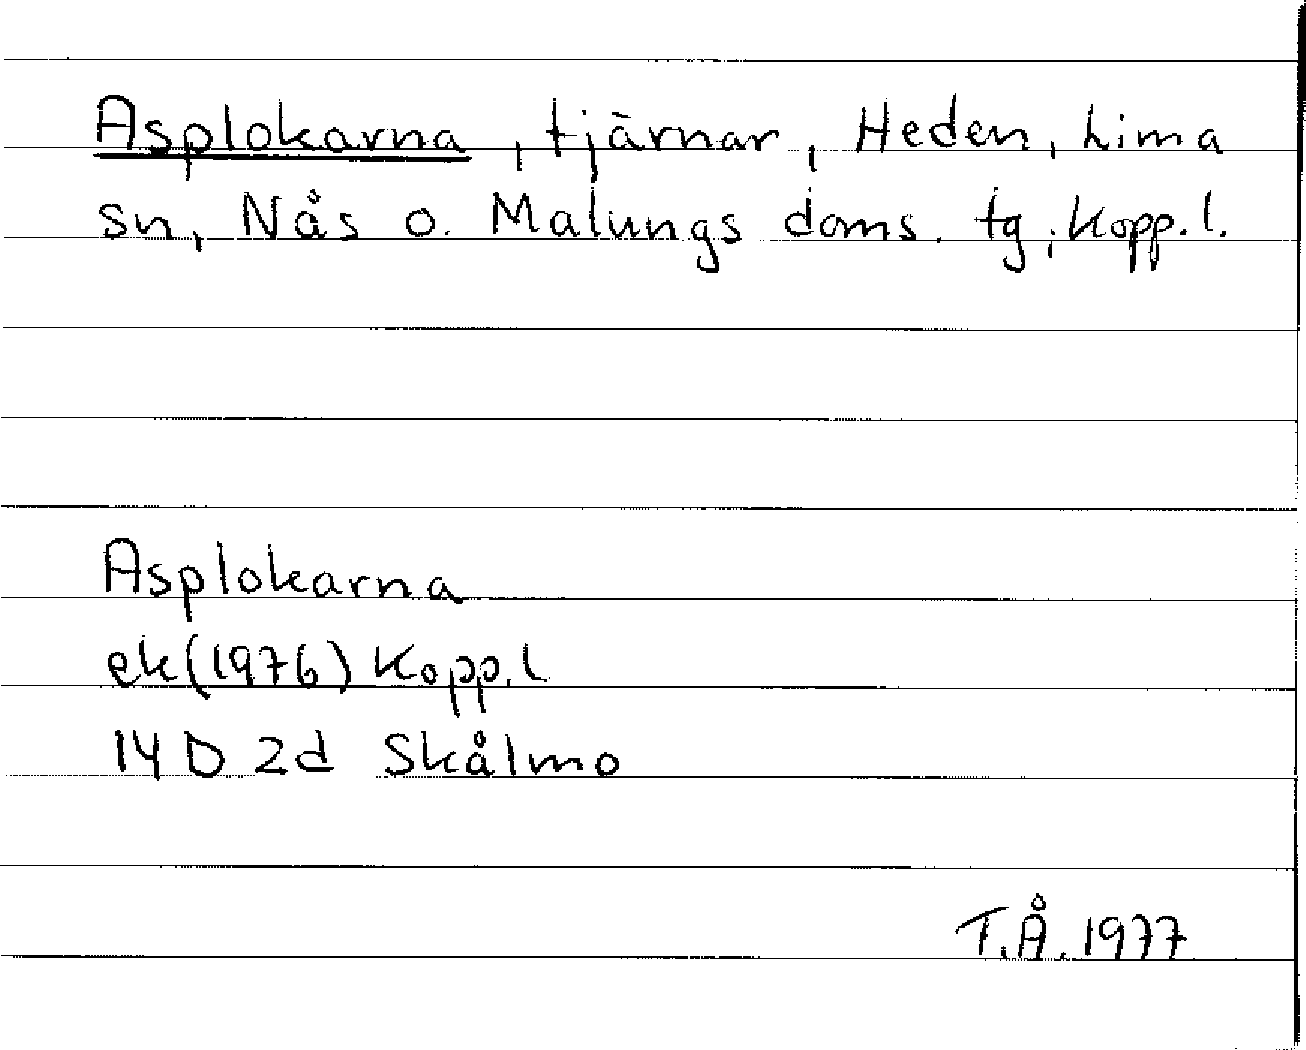 Asplokarna, tjärnar, Heden, Lima
sn, Nås o. Malungs doms. tg, Kopp.l.
Asplokarna
ek (1976) Kopp.l
14 D 2d Skålmo
T.Å. 1977